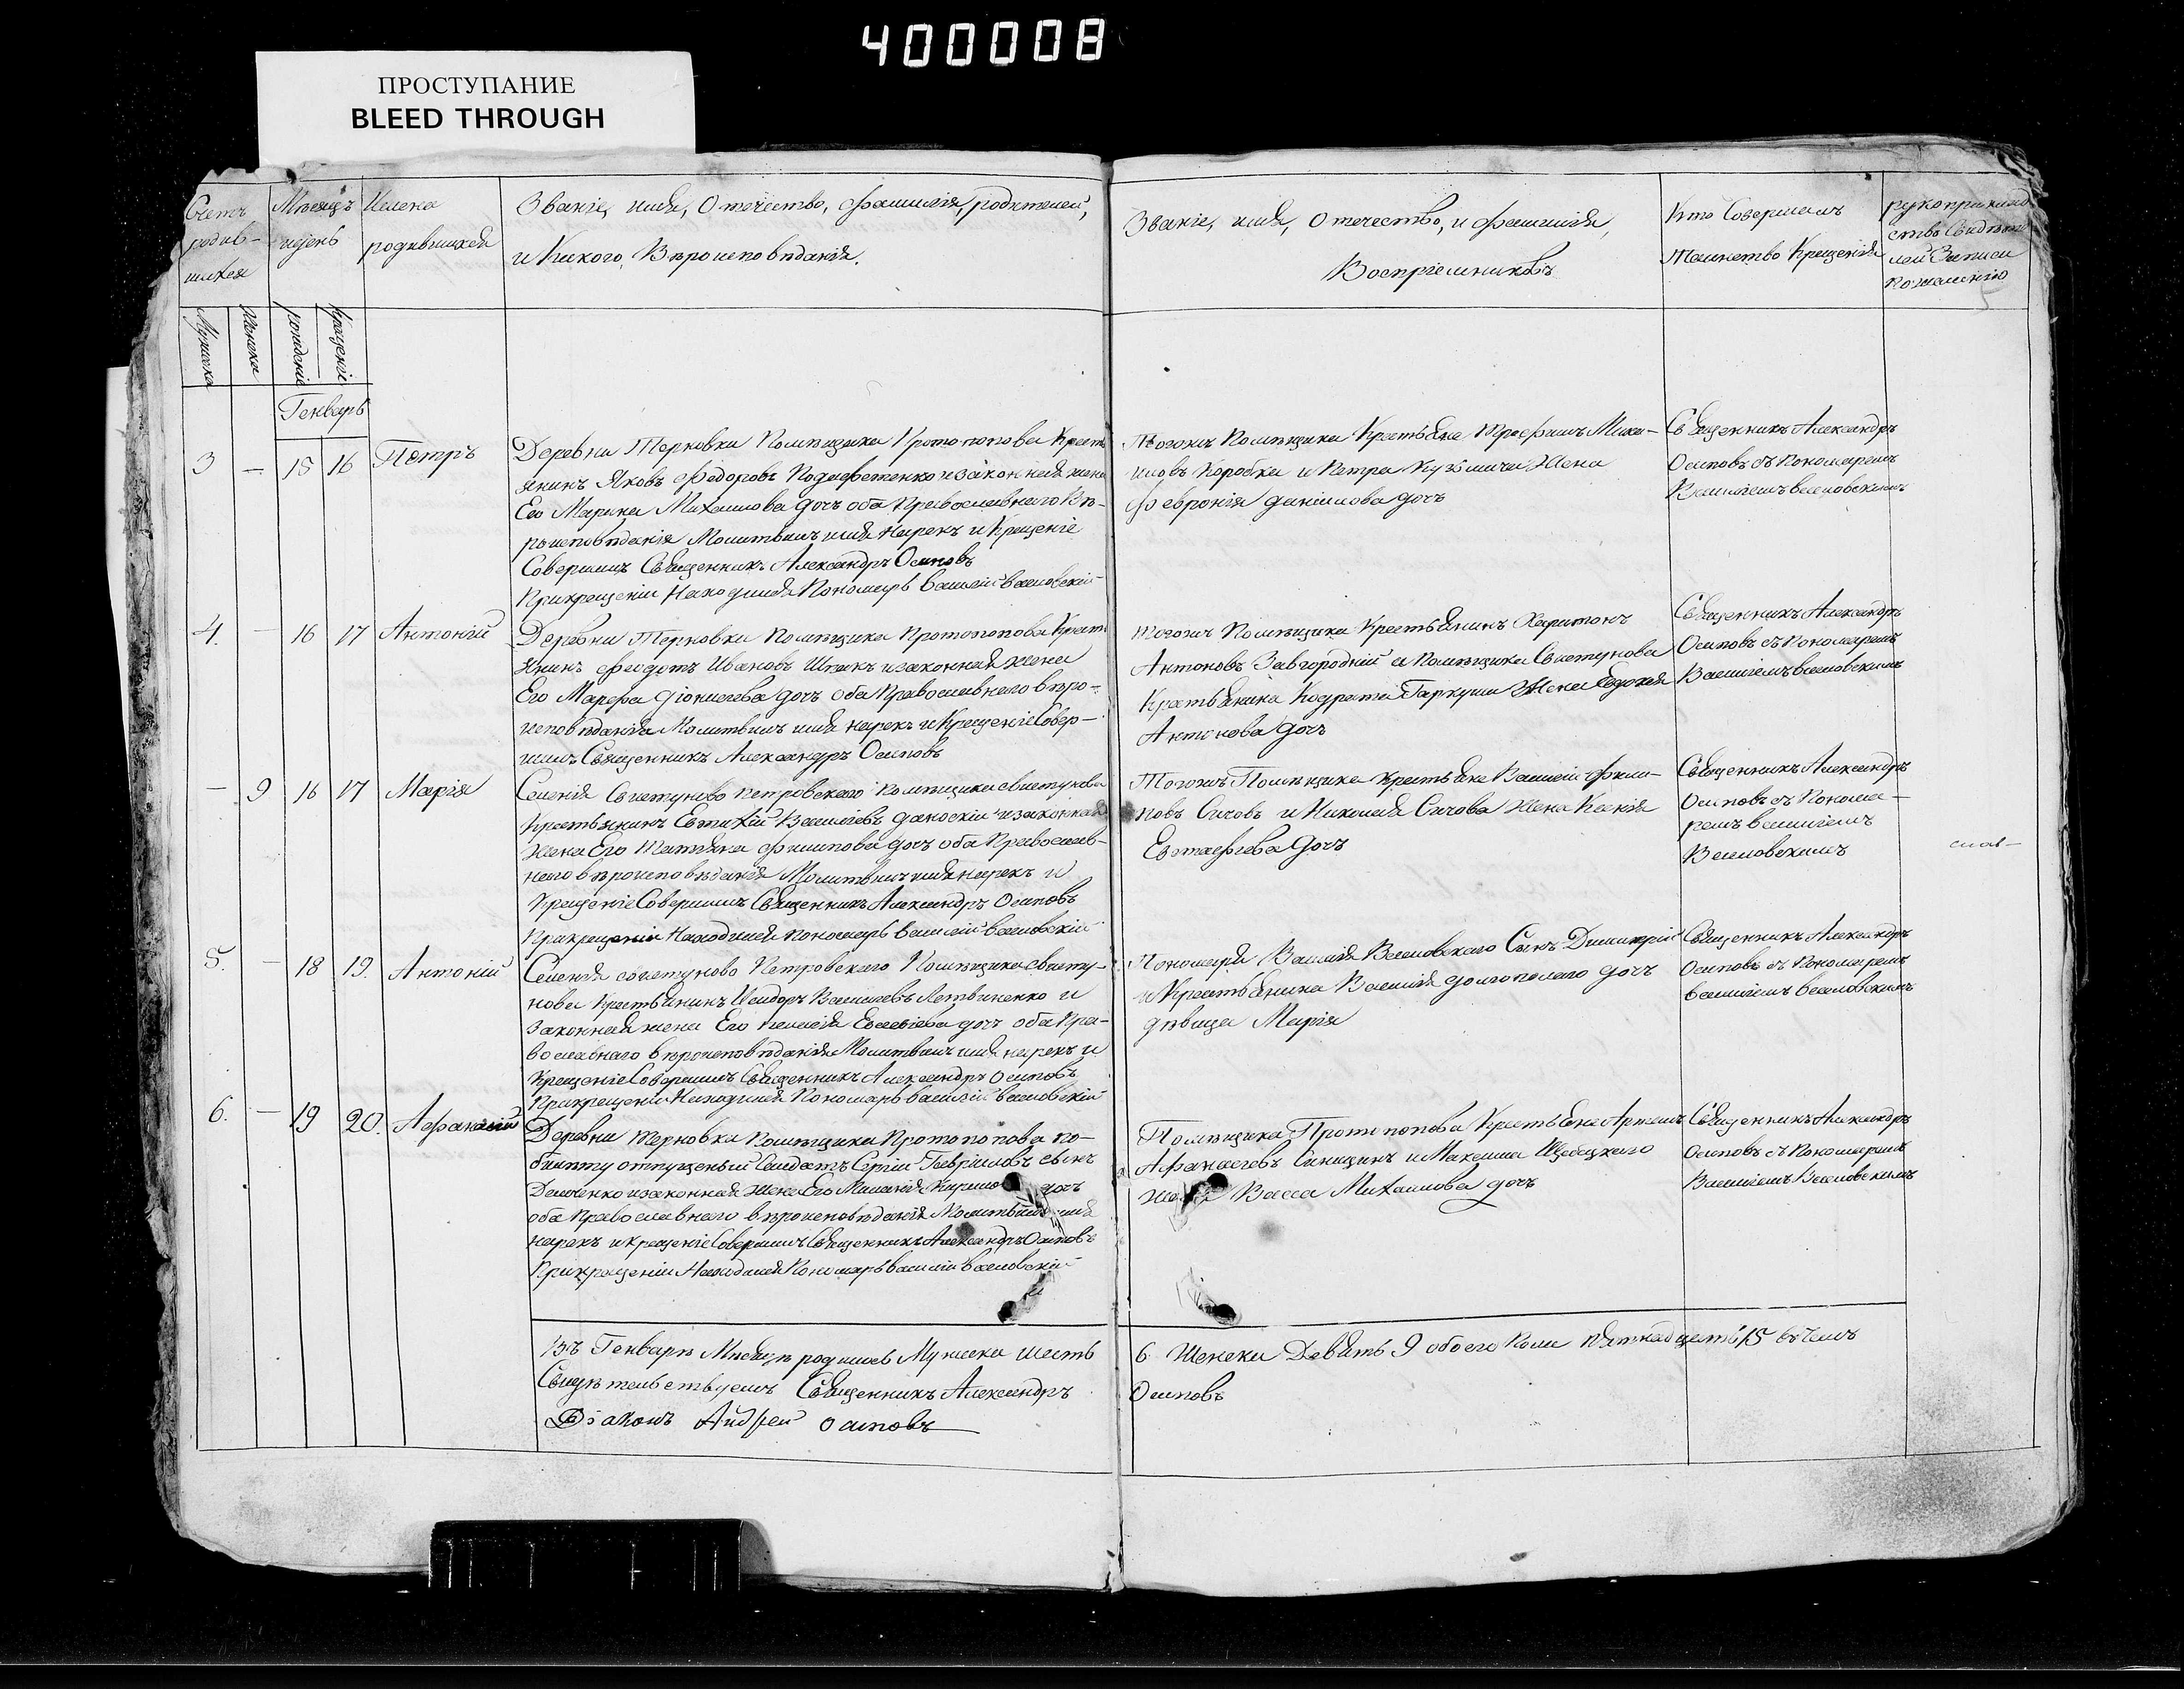 400008
ПРОСТУПАНИЕ
BLEED THROUGH
Счетъ
родив-
шихся
Мѣсяцъ
и день
Имена
родившихся
Званіе, имя, Отечество, Фамилія, родителей,
и Какого Вѣроисповѣданія.
Званіе, имя, Отечество, и Фамилія,
Воспріемниковъ
Кто Совершалъ
Таинство Крещенія
рукоприклад
ство Свидѣте
лей Записи
по желанію
Мужска
Женска
рожденіе
крещеніе
Генварь
3 — 15 16 Петръ
Деревни Терновки Помѣщика Протопопова Крест
янинъ Яковъ Федоровъ и законная жена
Его Марина Михаилова дочь оба Православнаго Вѣ-
роисповѣданія Молитвилъ имя Нарекъ и Крещеніе
Совершилъ Священникъ Александръ Осиповъ
При крещеніи Находился Пономарь Василій Василовскій
Тогожъ Помѣщика Крестьяне Трофимъ Миха-
иловъ Коробка и Петра Кузьмича Жена
Февронія Даніилова дочь
Священникъ Александръ
Осиповъ съ Пономаремъ
Василіемъ Василовскимъ
4. — 16 17 Антоній
Деревни Терновки Помѣщика Протопопова Крестя
янинъ Федотъ Ивановъ и законная жена
Его Марфа Діонисіева дочь оба Православнаго вѣро-
исповѣданія Молитвилъ имя нарекъ и Крещеніе Совер-
шилъ Священникъ Александръ Осиповъ
Тогожъ Помѣщика Крестьянинъ Харитонъ
Антоновъ Завгородній и Помѣщика Свистунова
Крестьянина Кодрата Гаркуши Жена Евдокія
Антонова дочь
Священникъ Александръ
Осиповъ съ Пономаремъ
Василіемъ Василовскимъ
— 9 16 17 Марія
Селенія Свистуново Петровскаго Помѣщика Свистунова
Крестьянинъ Евтихій Василіевъ и законная
жена Его Татьяна Филипова дочь оба Православ-
наго вѣроисповѣданія Молитвилъ имя нарекъ и
Крещеніе Совершилъ Священникъ Александръ Осиповъ
При крещеніи Находился Пономарь Василій Василовскій
Тогожъ Помѣщика Крестьяне Василій Фили-
повъ Сичовъ и Николая Сичова Жена Ксенія
Евстафіева Дочь
Священникъ Александръ
Осиповъ съ Понома-
ремъ Василіемъ
Василовскимъ
5. — 18 19. Антоній
Селенія Свистуново Петровскаго Помѣщика Свисту-
нова Крестьянинъ Исидоръ Василіевъ Летвиненко и
Законная жена Его Пелагія Евсевіева дочь оба Пра-
вославнаго вѣроисповѣданія Молитвилъ имя нарекъ и
Крещеніе Совершилъ Священникъ Александръ Осиповъ
При крещеніи Находился Пономарь Василій Василовскій
Пономаря Василія Василовскаго Сынъ Димитрій
и Крестьянина Василія Долгополаго дочь
дѣвица Марія
Священникъ Александръ
Осиповъ съ Пономаремъ
Василіемъ Василовскимъ
6. — 19 20. Афанасій
Деревни Терновка Помѣщика Протопопова по-
билету отпущеный Солдатъ Сергій Гавріиловъ сынъ
Демченко и законная Жена Его Меланія дочь
оба Православнаго вѣроисповѣданія Молитвилъ имя
нарекъ и крещеніе Совершилъ Священникъ Александръ Осиповъ
При крещеніи Находился Пономарь Василій Василовскій
Помѣщика Протопопова Крестьяне Артемъ
Афанасіевъ Синицинъ и Максима
жена Васса Михаилова дочь
Священникъ Александръ
Осиповъ съ Пономаремъ
Василіемъ Василовскимъ
Въ Генварѣ Мѣсяцѣ родилось Мужеска шесть
6 Женска Девять 9 обоего Пола пятнадцеть 15 въ чемъ
Свидѣтельствуемъ Священникъ Александръ
Осиповъ
Діаконъ Андрей Осиповъ